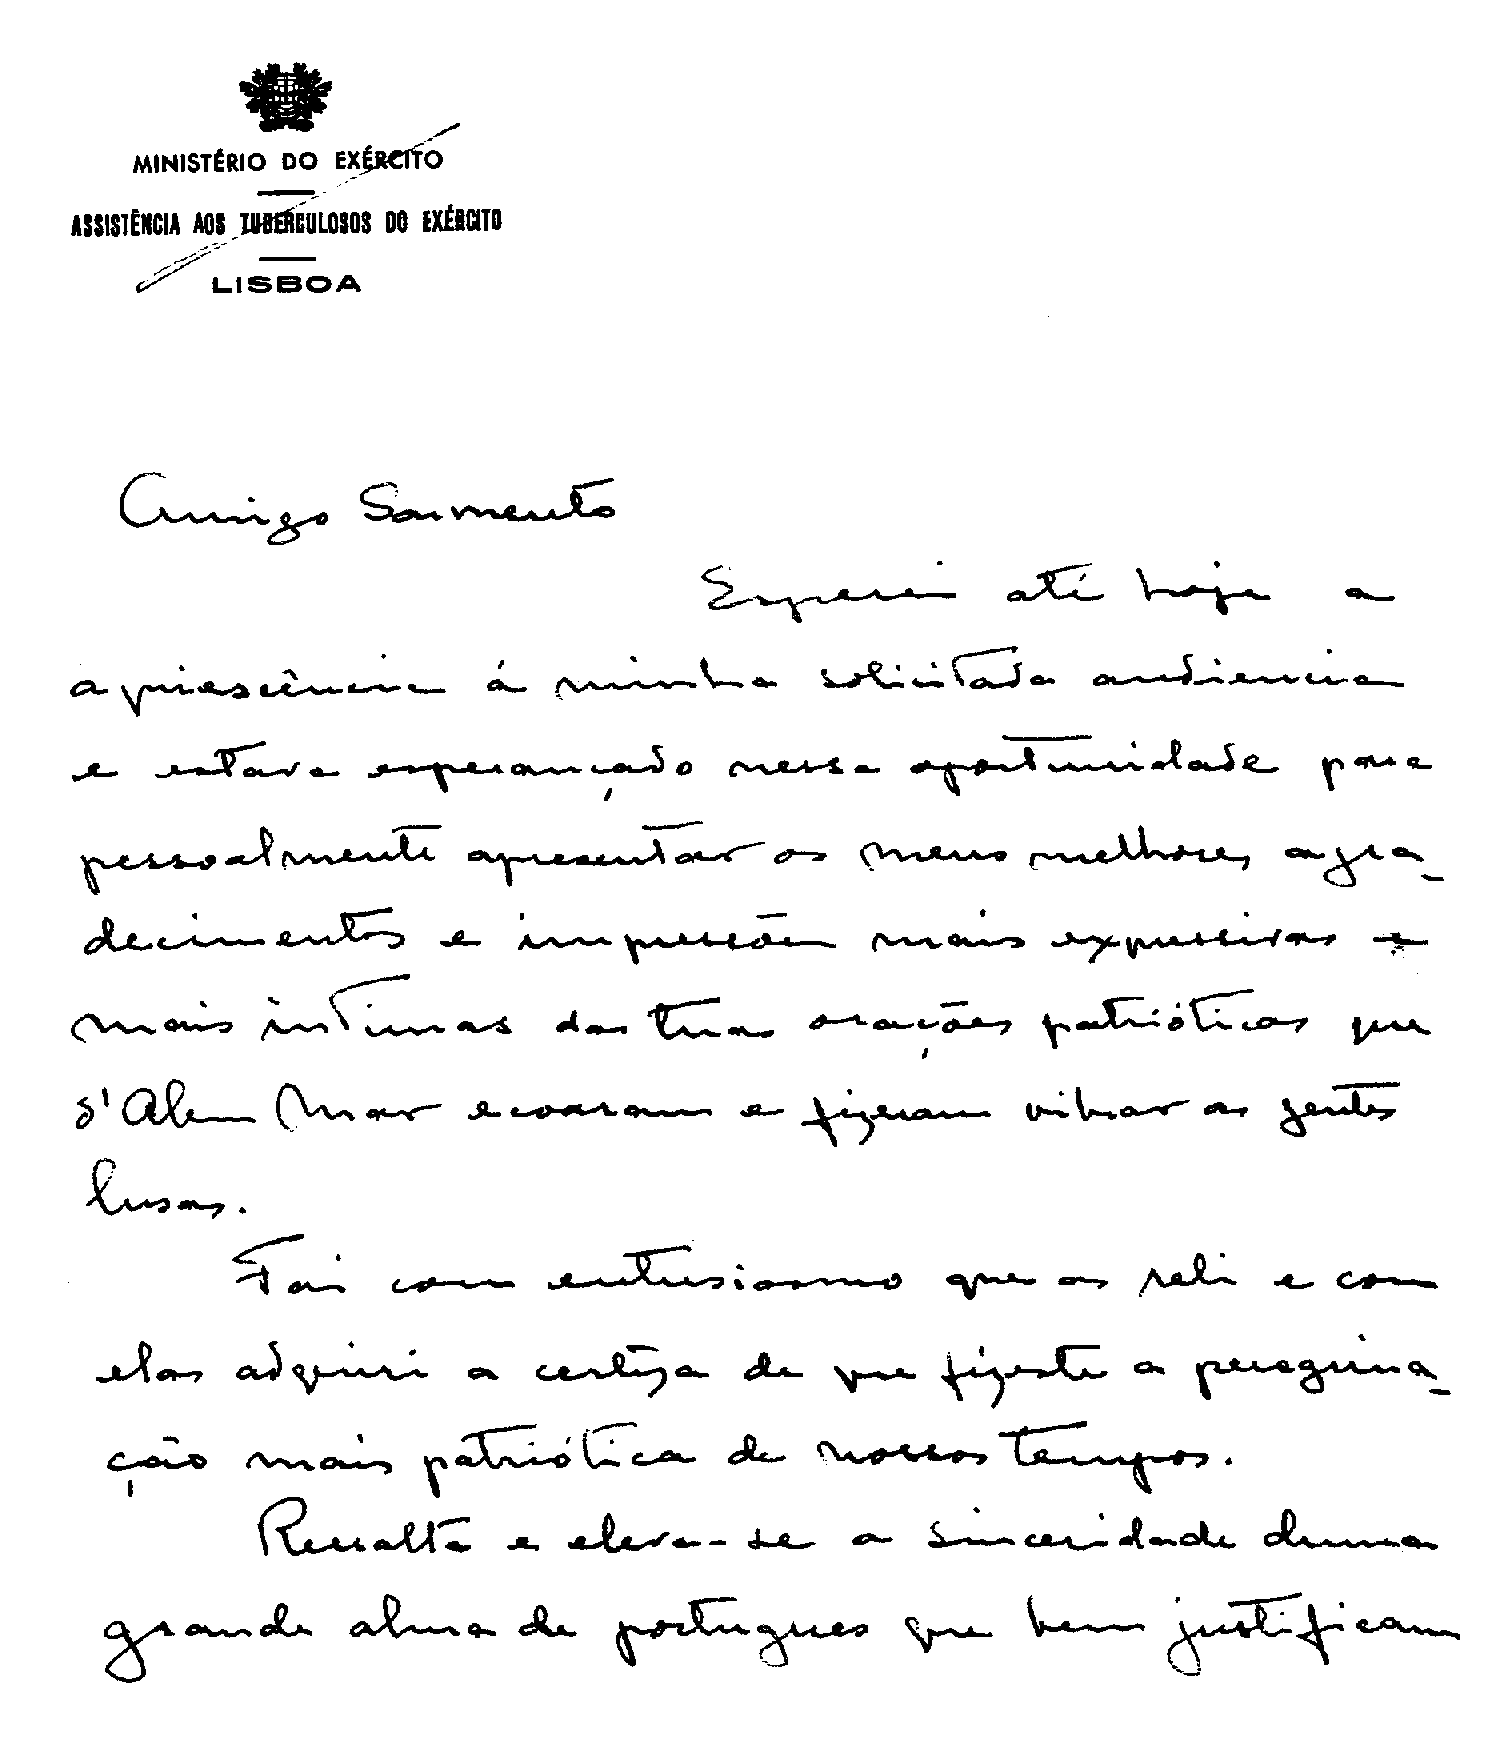 MINISTÉRIO DO EXÉRCITO
ASSISTÊNCIA AOS TUBERCULOSOS DO EXÉRCITO
LISBOA
Amigo Sarmento
Esperei até hoje a
aquiescência á minha solicitada audiencia
e estava esperançado nessa oportunidade para
pessoalmente apresentar os meus melhores agra-
decimentos e impressões mais expressivas e
mais intimas das tuas orações patrióticas que
d'Alem Mar ecoaram e fizeram vibrar as gentes
lusas.
Foi com entusiasmo que as reli e com
elas adquiri a certeza de que fizeste a peregrina-
ção mais patriótica de nossos tempos.
Ressalta e eleva-se a sinceridade duma
grande alma de portugues que bem justificam